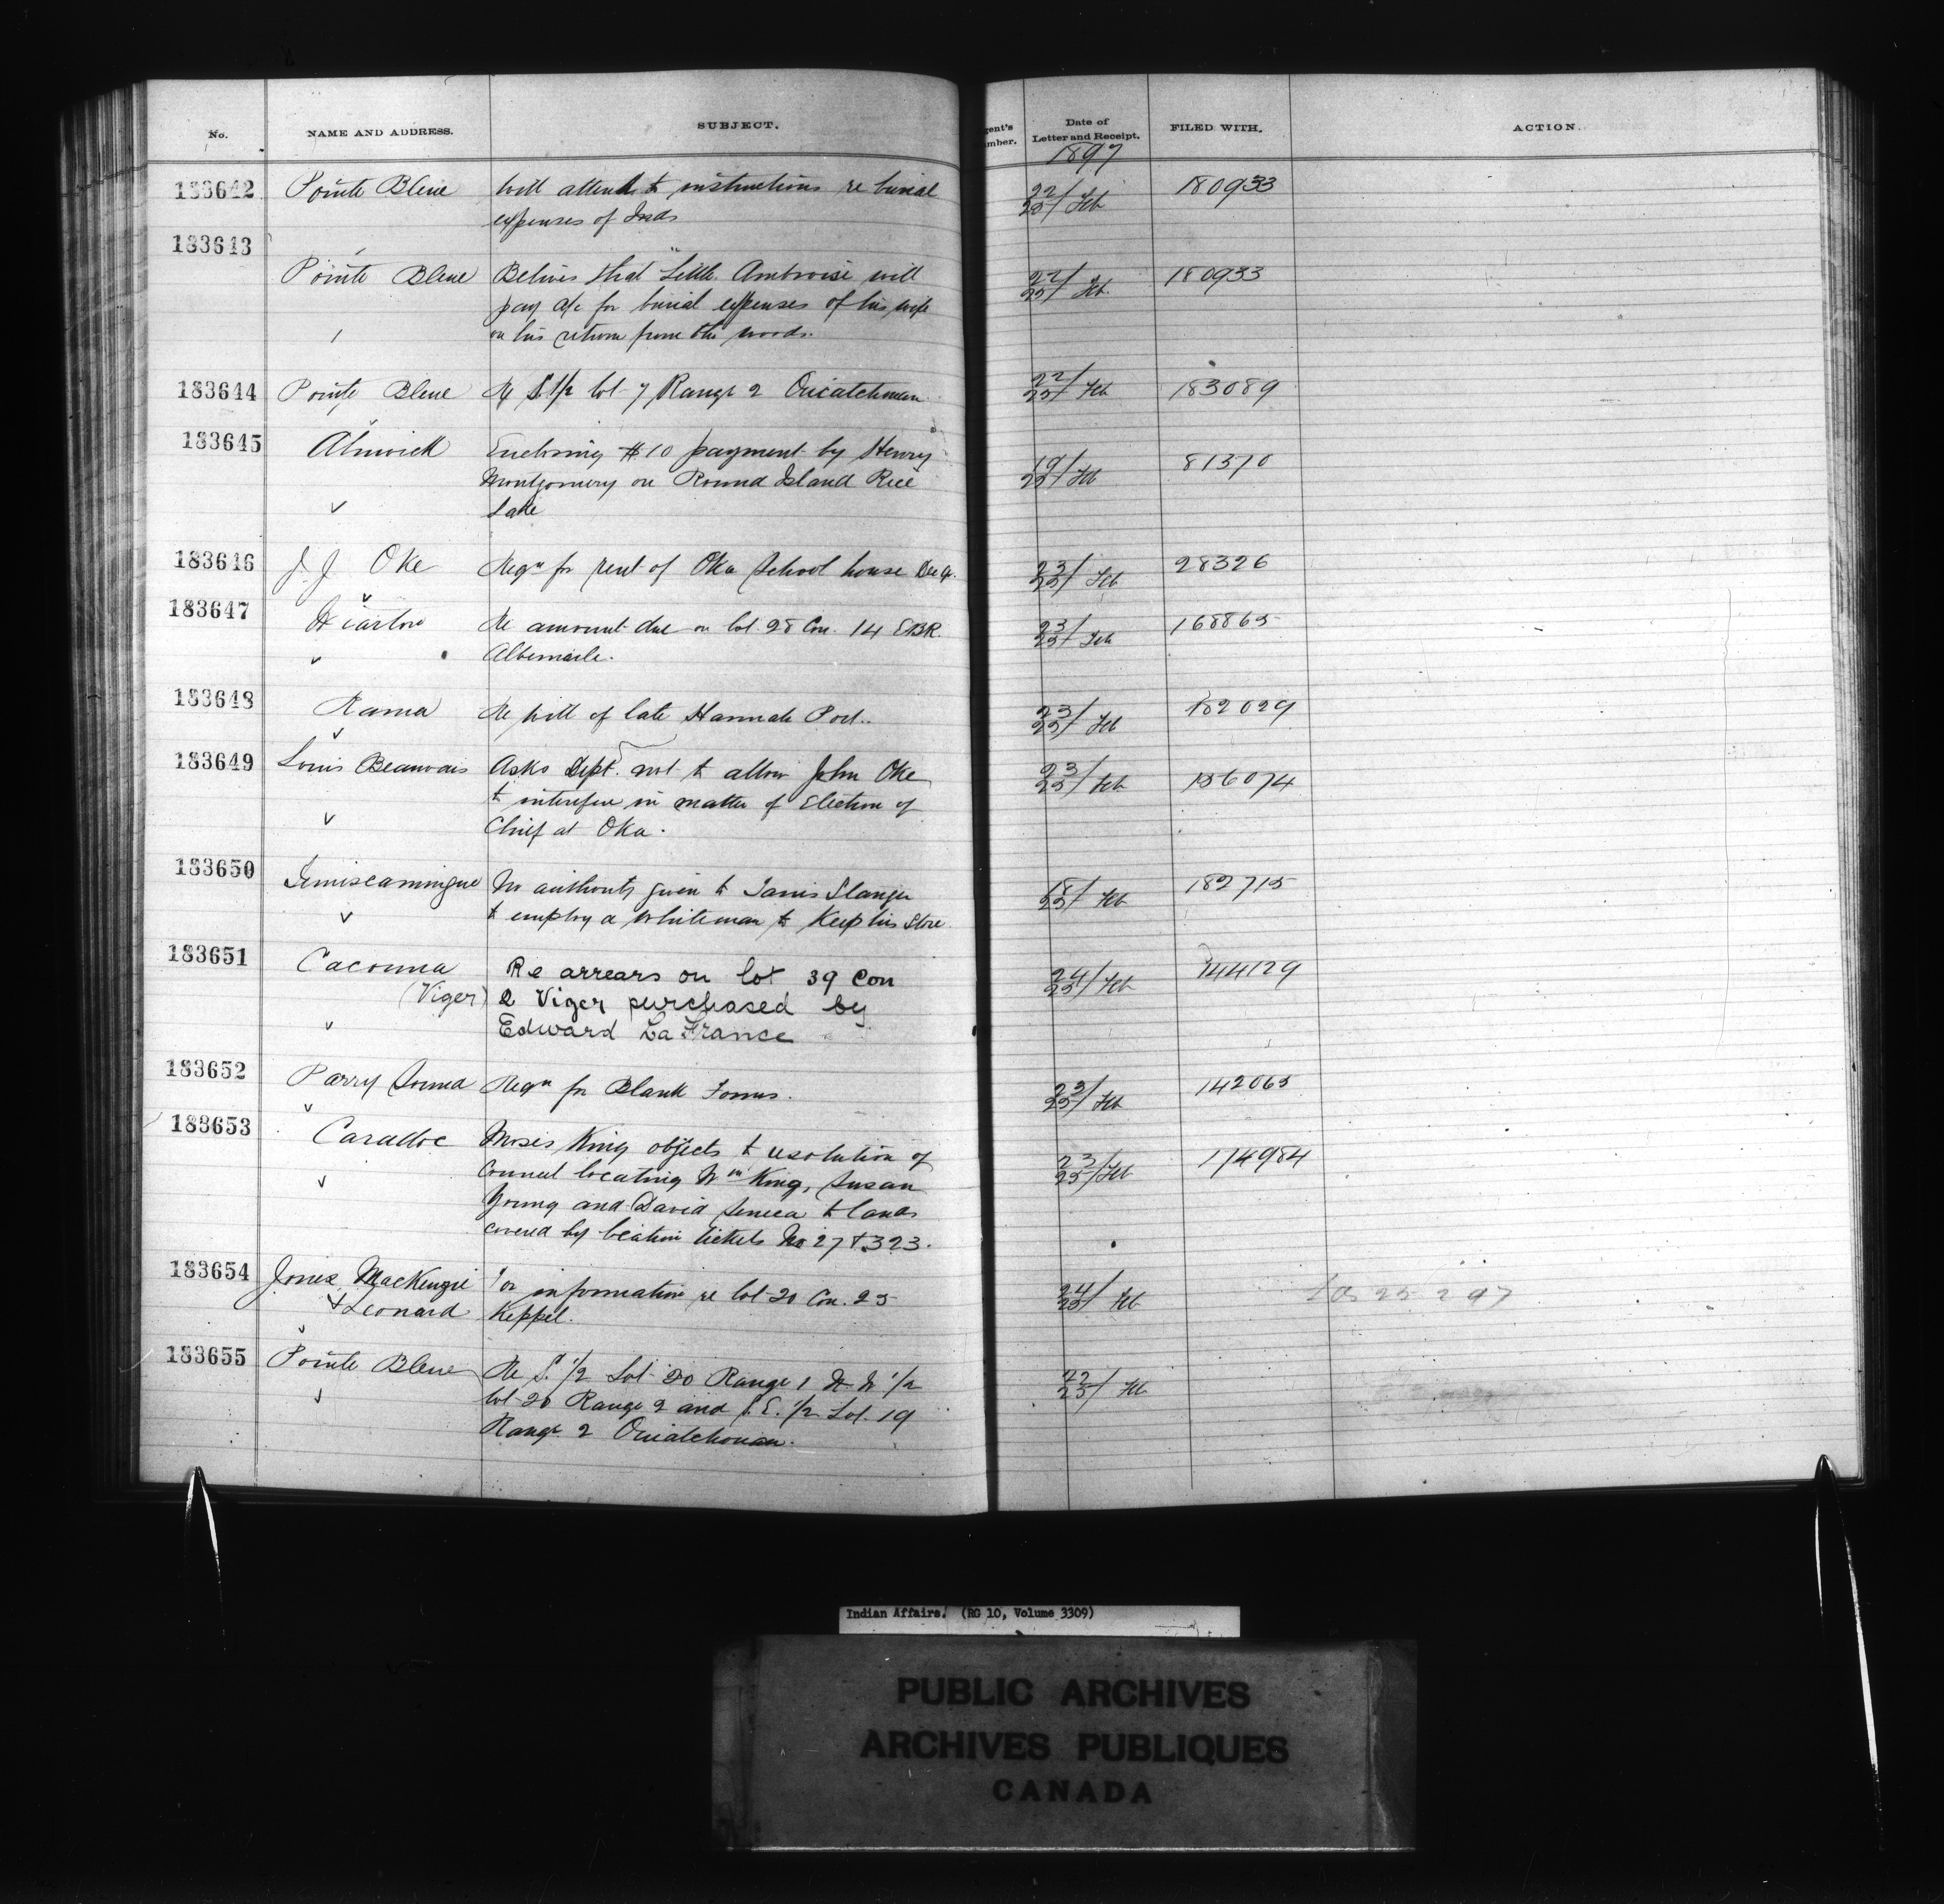 No. NAME AND ADDRESS. SUBJECT. gent's mber. Date of Letter and Receipt. FILED WITH. ACTION.
1897
183642 Pointe Bleue Will attend to instructions re burial 22/25/ Feb 180933
expenses of Inds
183643
Pointe Bleue Belives that "Little Ambroise will 22/25/ Feb. 180933
pay a/c for burial expenses of his wife
on his return from the woods.
183644 Pointe Bleue Re S. 1/2 lot 7 Range 2 Ouiatchouan 22/25/ Feb 183089
183645 Alnwick Enclosing $10 payment by Henry 19/25/ Feb 81370
Montgomery on Round Island Rice
Lake
183646 J. J Oke Reqn for rent of Oka School house Dec Qr. 23/25/ Feb 28326
183647 Wiarton Re amount due on lot 28 Con. 14 EBR. 23/25/ Feb 168865
Albemarle.
183648 Rama Re will of late Hannah 23/25/ Feb 182029
183649 Louis Beauvais Asks Dept. not to allow John Oke 23/25/ Feb 156074
to interfere in matter of Election of
Chief at Oka.
183650 Temiscamingue No authority given to 18/25/ Feb 182715
to employ a Whiteman to Keep his Store
183651 Cacouna Re arrears on lot 39 Con 24/25/ Feb 144129
(Viger) 2 Viger purchased by
Edward La France
183652 Parry Sound Reqn for Blank Forms. 23/25/ Feb 142065
183653 Caradoc Moses King objects to resolution of 23/25/ Feb 174984
Council locating Wm King, Susan
Young and David Seneca to lands
covered by location tickets No 27 & 323.
183654 Jones MacKenzie For information re lot 20 Con. 25 24/25/ Feb
& Leonard Keppel.
183655 Pointe Bleue Re S. 1/2 Lot 20 Range 1 N W 1/2 22/25/ Feb
lot 20 Range 2 and S. E. 1/2 Lot 19
Range 2 Ouiatchouan.
Indian Affairs. (RG 10, Volume 3309)
PUBLIC ARCHIVES
ARCHIVES PUBLIQUES
CANADA